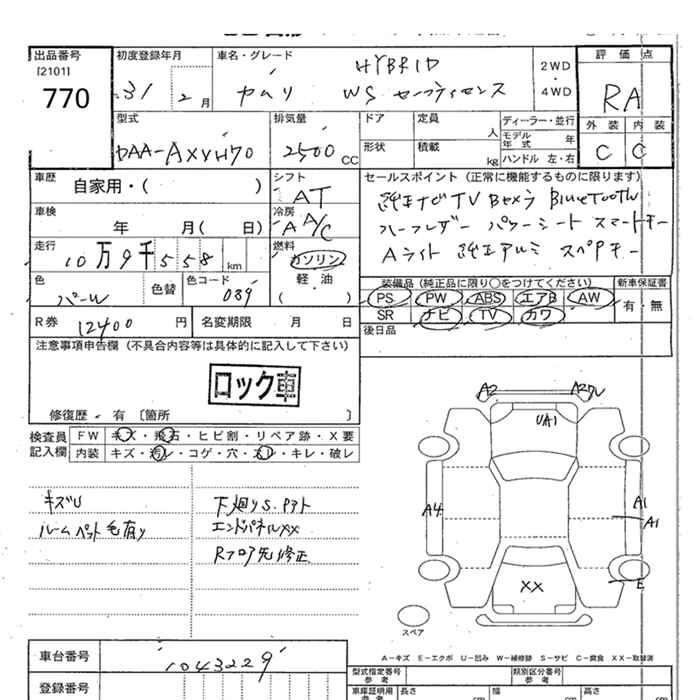 出品番号
[2101]
770
初度登録年月
31 2月
車名・グレード
HYBRID
カムリ WS セーフティセンス
2WD
・
4WD
評価点
RA
外装 内装
C C
型式
DAA-AXVH70
排気量
2500 CC
ドア
形状
定員
人
積載
kg
ディーラー・並行
モデル年式 年
ハンドル 左・右
車歴
自家用・( )
シフト
AT
車検
年 月( 日)
冷房
A A/C
走行
10万9千558 km
燃料
ガソリン
軽・油
( )
色
パール
色替
色コード
089
R券 12400 円
名変期限 月 日
セールスポイント (正常に機能するものに限ります)
純正ナビTV Bカメラ BlueTooth
ハーフレザー パワーシート スマートキー
Aライト 純正アルミ スペアキー
装備品 (純正品に限り○をつけてください)
PS PW ABS エアB AW
SR ナビ TV カワ
新車保証書
有・無
後日品
注意事項申告欄 (不具合内容等は具体的に記入して下さい)
ロック車
修復歴・有 〔箇所 〕
検査員
記入欄
FW キズ・飛石・ヒビ割・リペア跡・X要
内装 キズ・汚レ・コゲ・穴・スレ・キレ・破レ
キズU
ルームペット毛有り
下廻りS.アト
エンドパネルXX
Rフロア先修正
A2
UA1
A4
A1
A1
XX
E
スペア
A−キズ E−エクボ U−凹み W−補修跡 S−サビ C−腐食 XX−取替済
車台番号
1043229
登録番号
型式指定番号
参考
類別区分番号
参考
車庫証明用
参考
長さ
cm
幅
cm
高さ
cm